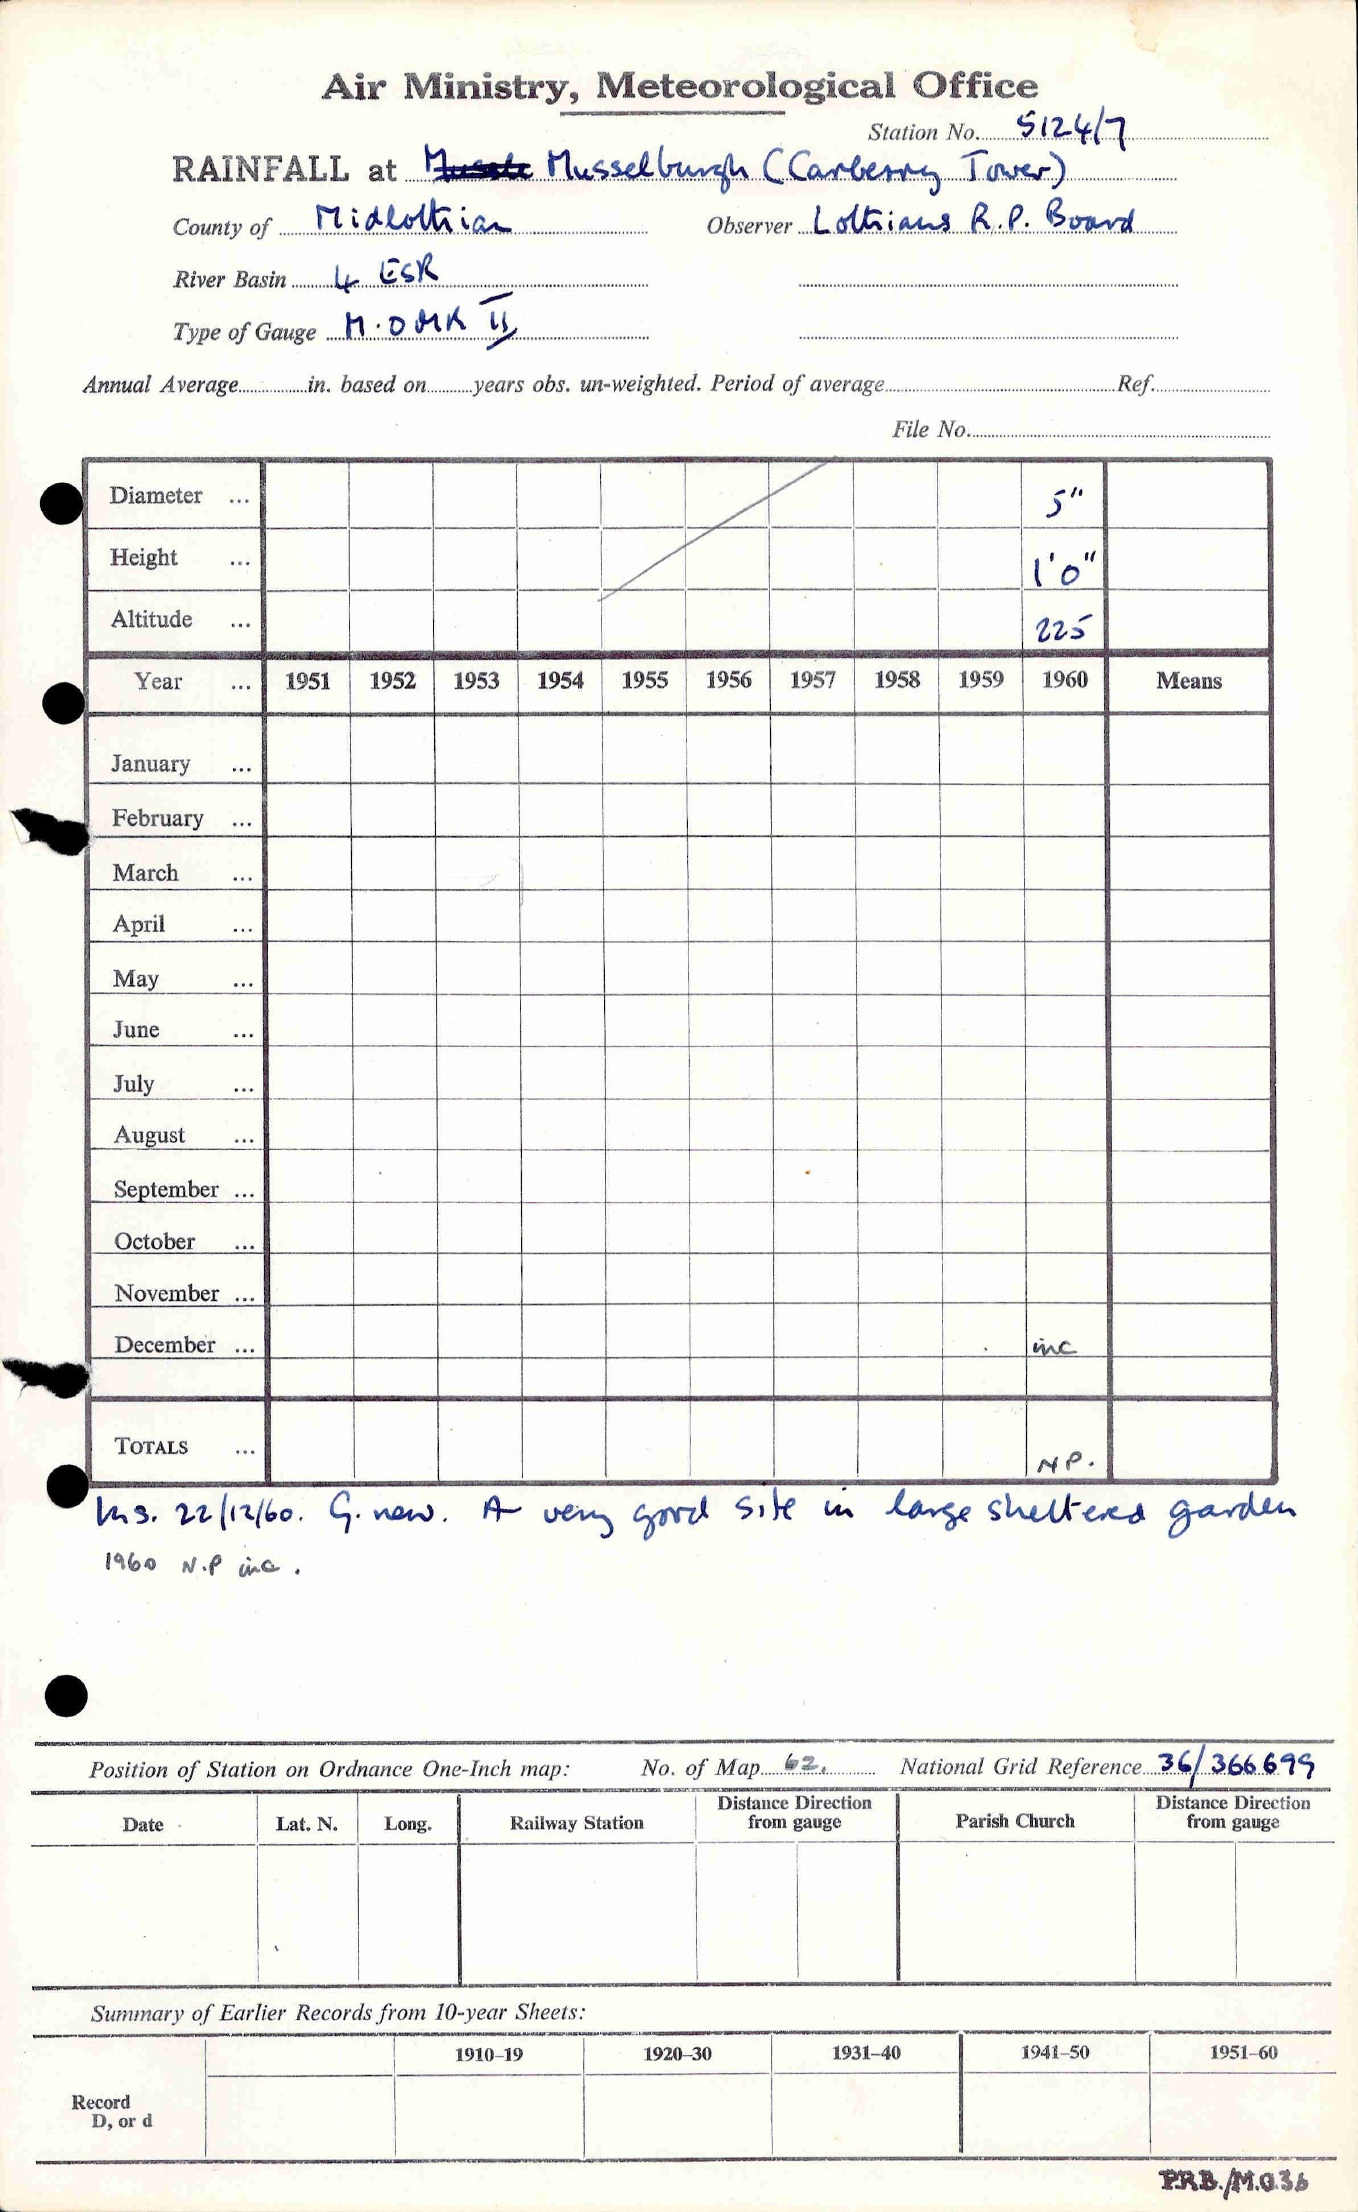 Air Ministry, Meteorological Office
Station No. 5124/7
RAINFALL at Musselburgh (Carberry Tower)
County of Midlothian Observer Lothians R.P. Board
River Basin 4 ESK
Type of Gauge M.O MK II
Annual Average in. based on years obs. un-weighted. Period of average Ref.
File No.
Diameter ... 5"
Height ... 1'0"
Altitude ... 225
Year ... 1951 1952 1953 1954 1955 1956 1957 1958 1959 1960 Means
January ...
February ...
March ...
April ...
May ...
June ...
July ...
August ...
September ...
October ...
November ...
December ... inc
TOTALS ... N.P.
Ins. 22/12/60. G. new. A very good site in large sheltered garden
1960 N.P inc.
Position of Station on Ordnance One-Inch map: No. of Map 62. National Grid Reference 36/366699
Date Lat. N. Long. Railway Station Distance Direction from gauge Parish Church Distance Direction from gauge
Summary of Earlier Records from 10-year Sheets:
1910–19 1920–30 1931–40 1941–50 1951–60
Record
D, or d
P.R.B./M.O.36